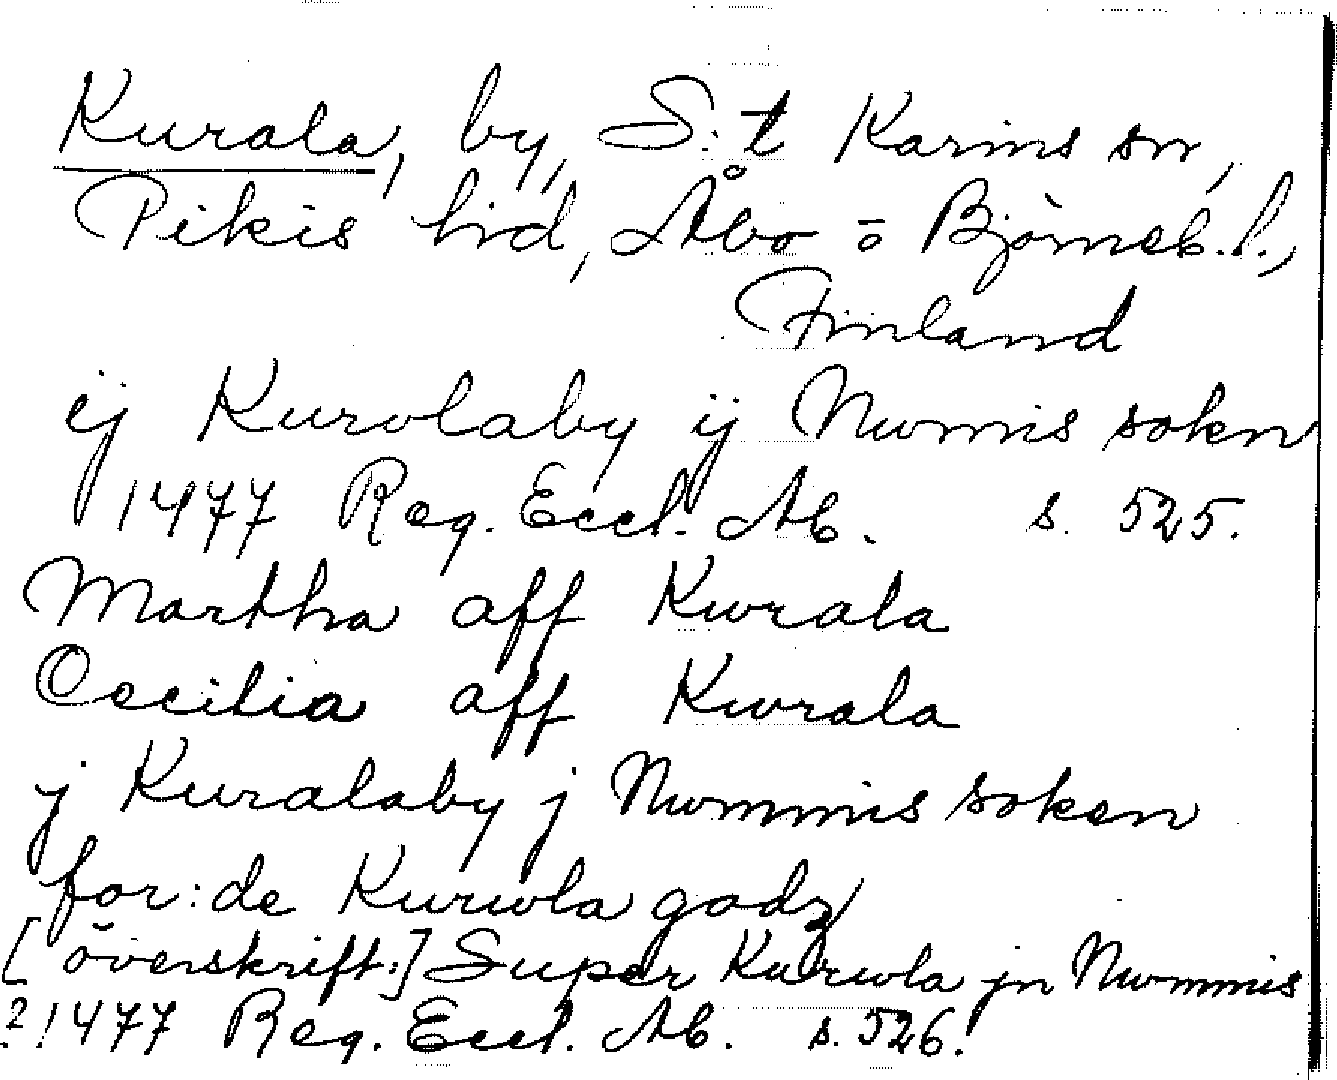 Kurala, by, S:t Karins sn,
Pikis hd, Åbo o Björneb. l.,
Finland
ej Kurolaby ij Nwmis sokn
1477 Reg. Eccl. Ab. s. 525.
Martha aff Kwrala
Cecilia aff Kwrala
j Kuralaby j Nwmmis soken
for:de Kurwla godz
[överskrift:] Super Kurwla jn Nwmmis
21477 Reg. Eccl. Ab. s. 526.